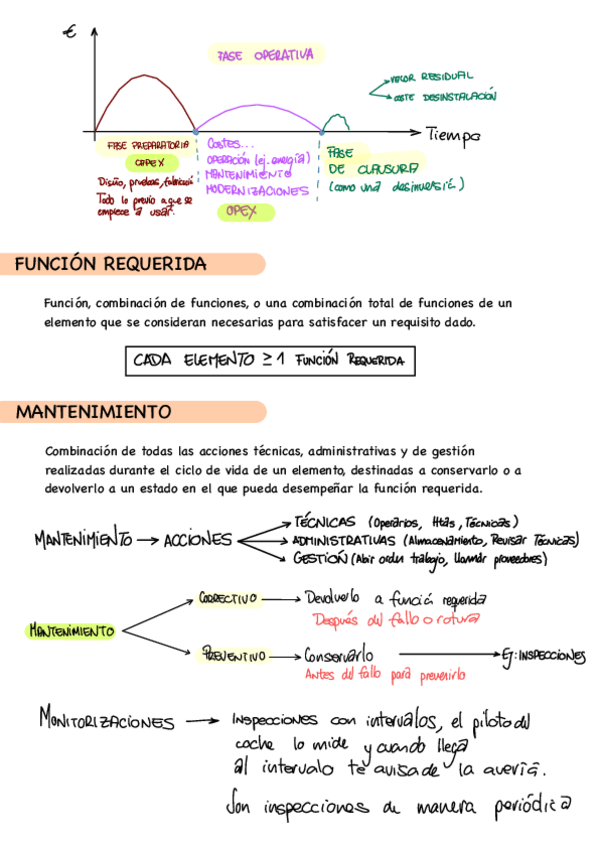 €
FASE OPERATIVA
VALOR RESIDUAL
COSTE DESINSTALACIÓN
Tiempo
FASE PREPARATORIA
CAPEX
Diseño, pruebas, fabricació
Todo lo previo a que se
empiece a usar.
Costes...
OPERACIÓN (ej. energía)
MANTENIMIENTO
MODERNIZACIONES
OPEX
FASE
DE CLAUSURA
(como una desinversió.)
FUNCIÓN REQUERIDA
Función, combinación de funciones, o una combinación total de funciones de un
elemento que se consideran necesarias para satisfacer un requisito dado.
CADA ELEMENTO ≥ 1 FUNCIÓN REQUERIDA
MANTENIMIENTO
Combinación de todas las acciones técnicas, administrativas y de gestión
realizadas durante el ciclo de vida de un elemento, destinadas a conservarlo o a
devolverlo a un estado en el que pueda desempeñar la función requerida.
MANTENIMIENTO → ACCIONES
TÉCNICAS (Operarios, Htas, Técnicas)
ADMINISTRATIVAS (Almacenamiento, Revisar Técnicas)
GESTIÓN (Abir orden trabajo, llamar proveedores)
MANTENIMIENTO
CORRECTIVO → Devolverlo a funció requerida
Después del fallo o rotura
PREVENTIVO → Conservarlo → Ej: INSPECCIONES
Antes del fallo para prevenirlo
MONITORIZACIONES → Inspecciones con intervalos, el piloto del
coche lo mide y cuando llega
al intervalo te avisa de la avería.
Son inspecciones de manera periódica